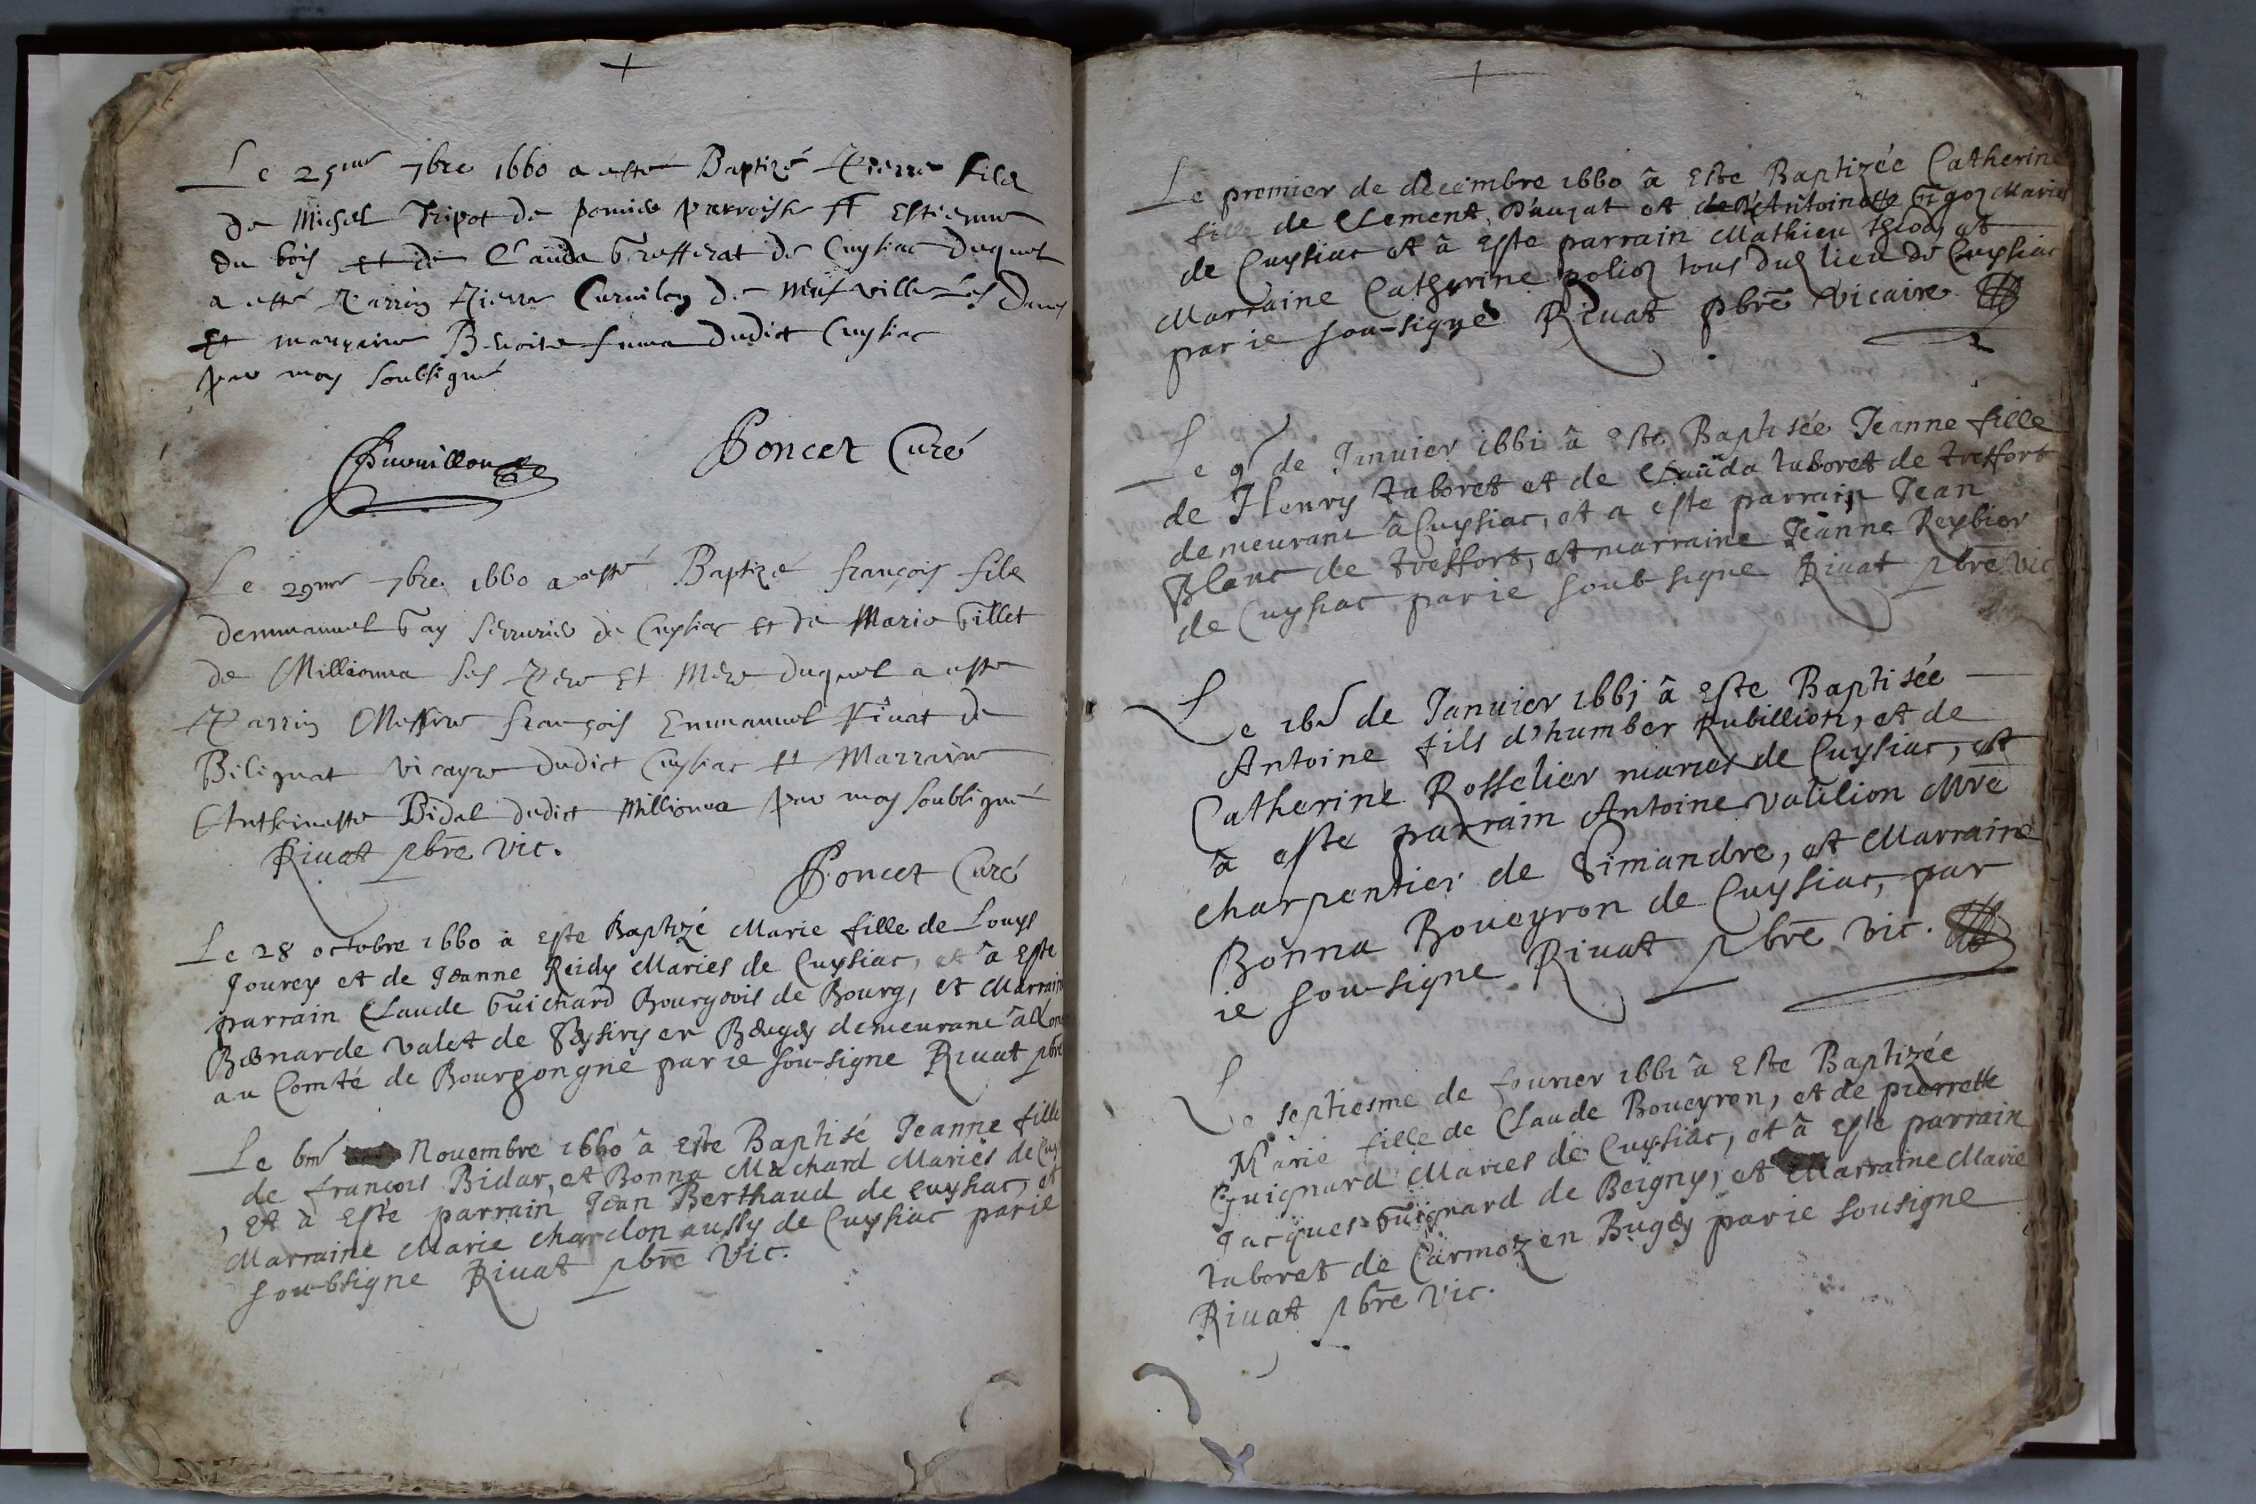 Le 25me 7bre 1660 a esté Baptizé Pierre filz
de Michel Tripot de parroisse St Estienne
du bois et de Clauda Greffetat de Cuysiac duquel
a esté Parrin Pierre de Neufville les Dames
Et marrayne Benoite dudict Cuysiac
par moy soubsigné
Poncet Curé
Le 29me 7bre 1660 a esté Baptizé françois filz
demmanuel Gay serrurier de Cuysiac et de Marie Gillet
de Millionna ses Pere Et Mere duquel a esté
Parrin Messire françois Emmanuel Rivat de
Bilignat vicayre dudict Cuysiac et Marraine
Anthoinette Bidal dudict Millionna par moy soubsigné
Rivat pbre vic.
Poncet Curé
Le 28 octobre 1660 à Este Baptizé Marie fille de Louys
Jourey et de Jeanne Reidy Mariés de Cuysiac, et à Este
parrain Claude Guichard Bourgeois de Bourg, et Marraine
Bernarde valet de en Beugey demeurant à
au Comté de Bourgongne par ie sou-signe Rivat pbre
Le 6me Novembre 1660 à Este Baptisé Jeanne fille
de francois Bidar, et Bonna Machard Mariés de Cuy
, et à Este parrain Jean Berthaud de Cuysiac, et
Marraine Marie chardon aussy de Cuysiac par ie
soubsigne Rivat pbre vic.
Le premier de décembre 1660 à Este Baptizée Catherine
fille de Clement Dauzat et de Antoinette Mariés
de Cuysiac et à Este parrain Mathieu et
Marraine Catherine tous dud lieu de Cuysiac
par ie sou-signe Rivat pbre vicaire
Le 9 de Janvier 1661 à Este Baptisée Jeanne fille
de Henry taboret et de Clauda taboret de treffort
demeurant à Cuysiac, et a este parrain Jean
Blanc de treffort, et marraine Jeanne Reybier
de Cuysiac par ie soub signe Rivat pbre vic
Le 16 de Janvier 1661 à Este Baptisée
Antoine fils d'humber Rubillion, et de
Catherine Rosselier mariés de Cuysiac, et
à este parrain Antoine vatilion Mre
charpentier de Simandre, et Marraine
Bonna Boveyron de Cuysiac, par
ie sou-signe Rivat pbre vic.
Le septiesme de fevrier 1661 à Este Baptizée
Marie fille de Claude Boveyron, et de pierrette
Guignard Mariés de Cuysiac, et à Este parrain
Jacques Guignard de Beigny, et Marraine Marie
taboret de Carmoz en Bugey par ie sousigne
Rivat pbre vic.